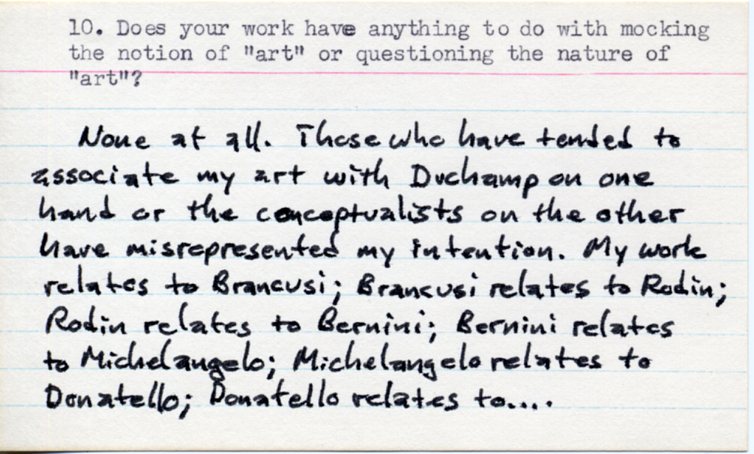 10. Does your work have anything to do with mocking
the notion of "art" or questioning the nature of
"art"?
None at all. Those who have tended to
associate my art with Duchamp on one
hand or the conceptualists on the other
have misrepresented my intention. My work
relates to Brancusi; Brancusi relates to Rodin;
Rodin relates to Bernini; Bernini relates
to Michelangelo; Michelangelo relates to
Donatello; Donatello relates to....